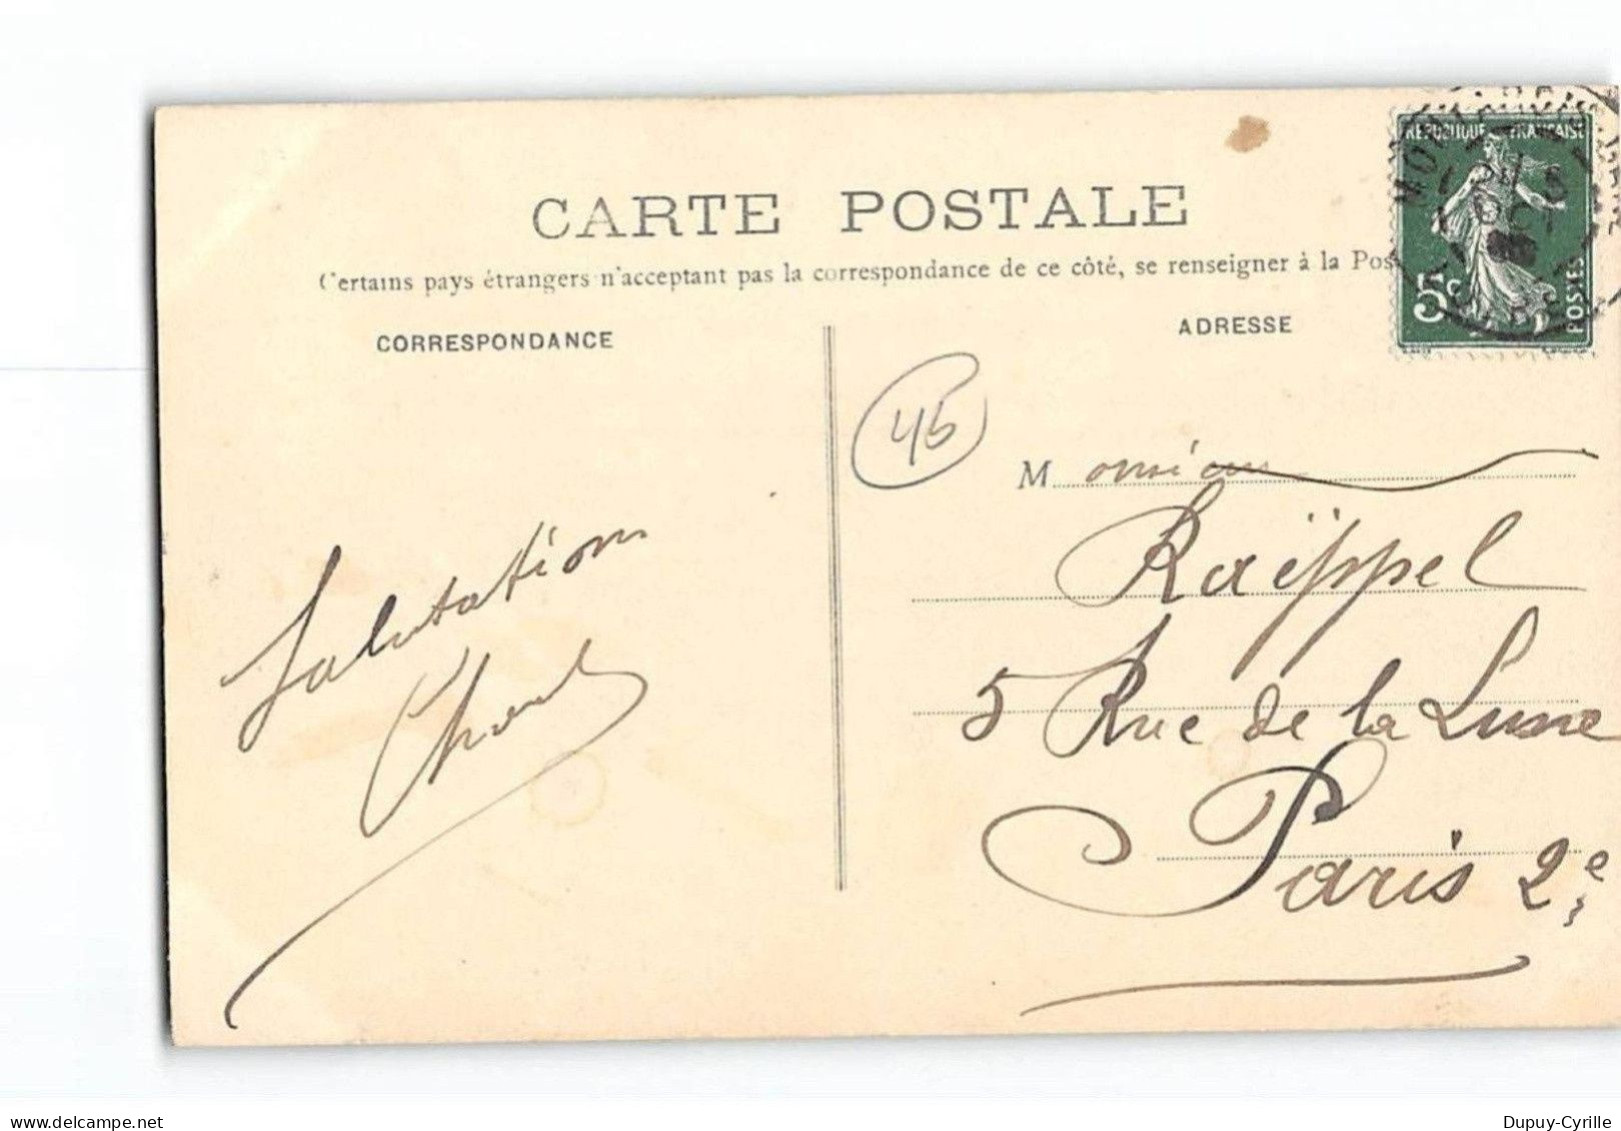 CARTE POSTALE
Certains pays étrangers n'acceptant pas la correspondance de ce côté, se renseigner à la Pos
CORRESPONDANCE
ADRESSE
RÉPUBLIQUE FRANÇAISE
5c
POSTES
45
Monsieur
Raëppel
5 Rue de la Lune
Paris 2e
Salutation
delcampe.net
Dupuy-Cyrille